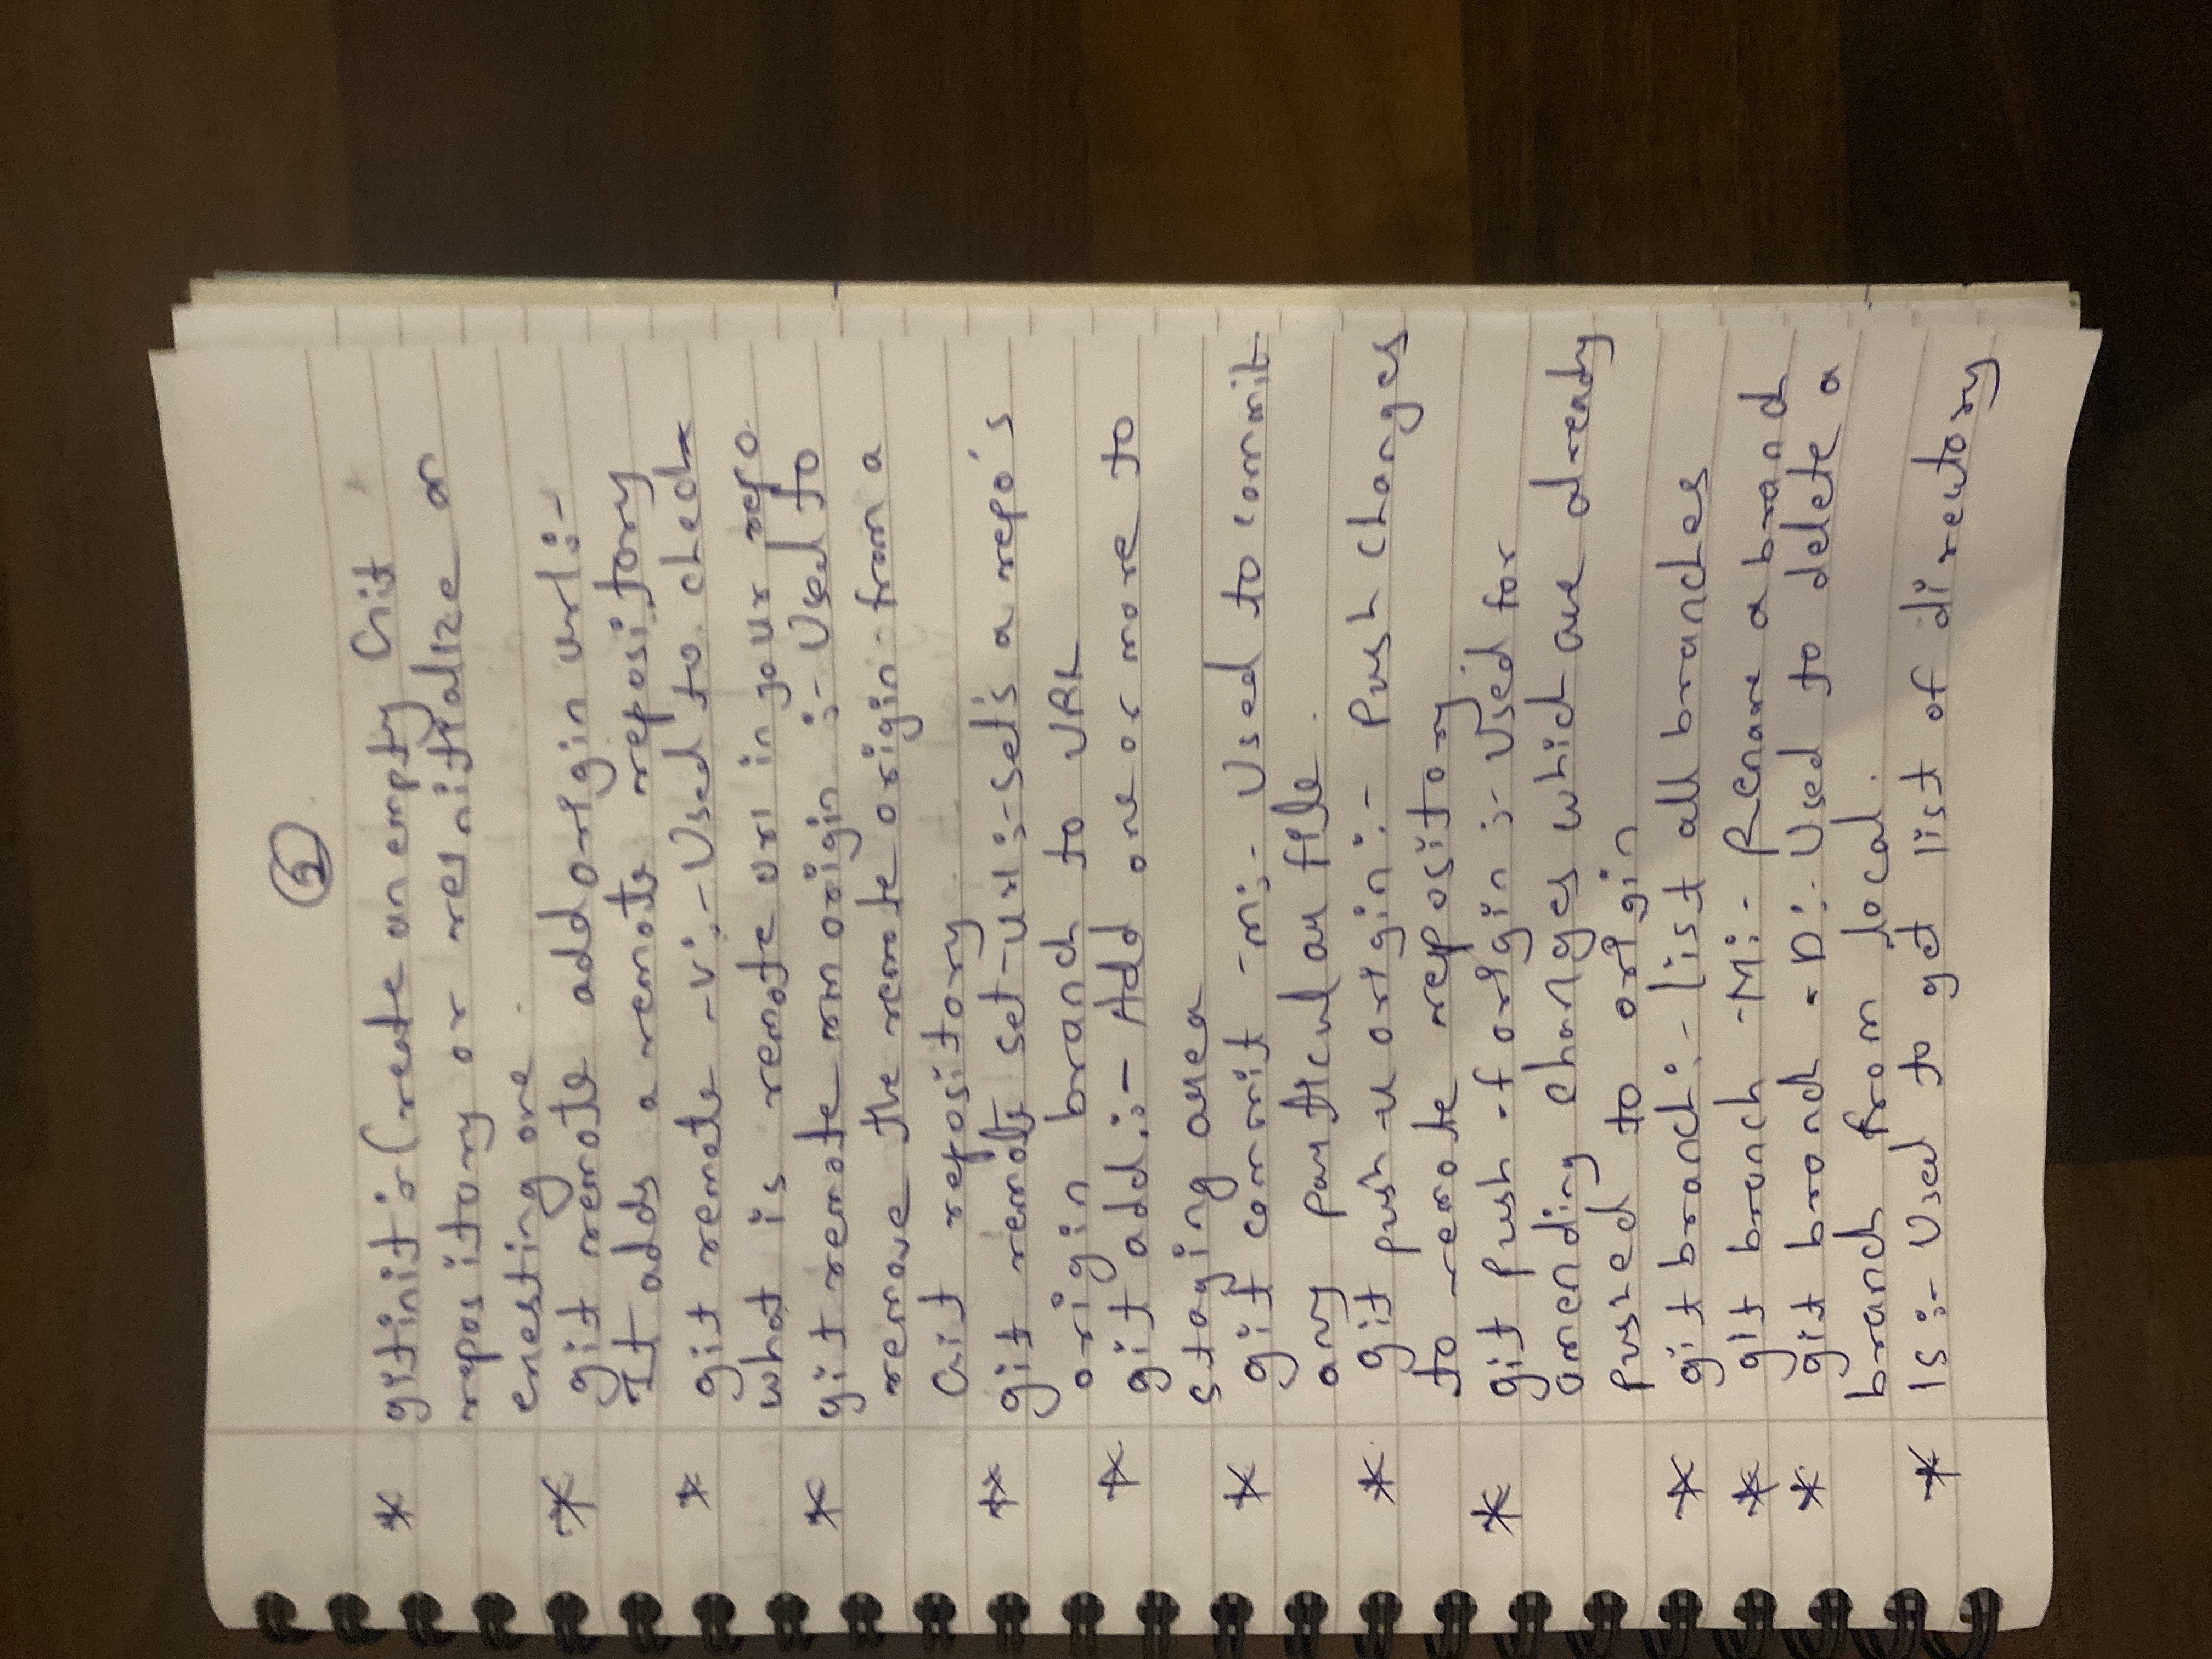 2
* gitinit :- Create an empty Git
repository or reinitialize an
enesting one.
* git remote add origin url :-
It adds a remote repository
* git remote -v :- Used to check
what is remote url in your repo.
* git remote rm origin :- Used to
remove the remote origin from a
Git repository.
* git remote set-url :- set's a repo's
origin branch to URL
* git add. :- Add one or more to
staging area
* git commit -m :- Used to commit
any particular file.
* git push -u origin :- Push changes
to remote repository.
* git push -f origin :- Used for
amending changes which are already
pushed to origin
* git branch :- list all branches
* git branch -M :- Rename a branch
* git branch -D :- Used to delete a
branch from local.
* ls :- Used to get list of directory